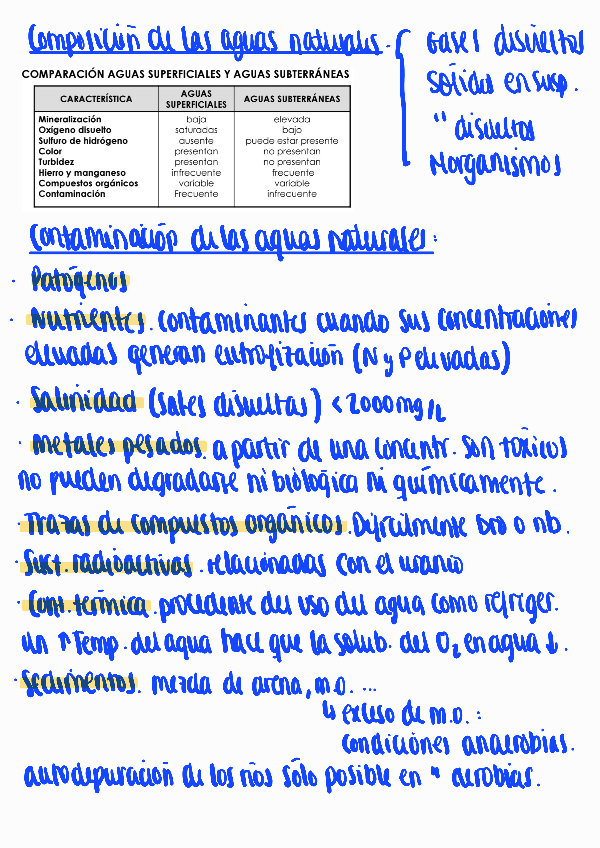 Composición de las aguas naturales.
Gases disueltos
sólidos en susp.
" disueltos
Morganismos
COMPARACIÓN AGUAS SUPERFICIALES Y AGUAS SUBTERRÁNEAS
CARACTERÍSTICA AGUAS SUPERFICIALES AGUAS SUBTERRÁNEAS
Mineralización baja elevada
Oxígeno disuelto saturadas bajo
Sulfuro de hidrógeno ausente puede estar presente
Color presentan no presentan
Turbidez presentan no presentan
Hierro y manganeso infrecuente frecuente
Compuestos orgánicos variable variable
Contaminación Frecuente infrecuente
Contaminación de las aguas naturales:
· Patógenos
· Nutrientes. contaminantes cuando sus concentraciones
elevadas generan eutrofización (N y P elevadas)
· Salinidad (sales disueltas) < 2000 mg/L
· Metales pesados. a partir de una concentr. son tóxicos
no pueden degradarse ni biológica ni químicamente.
· Trazas de compuestos orgánicos. Difícilmente bio o nb.
· Sust. radioactivas. relacionadas con el uranio
· Cont. térmica. procedente del uso del agua como refriger.
un ↑ Temp. del agua hace que la solub. del O₂ en agua ↓.
· Sedimentos. mezcla de arena, m.o. ...
↳ exceso de m.o. :
condiciones anaerobias.
autodepuración de los ríos sólo posible en " aerobias.